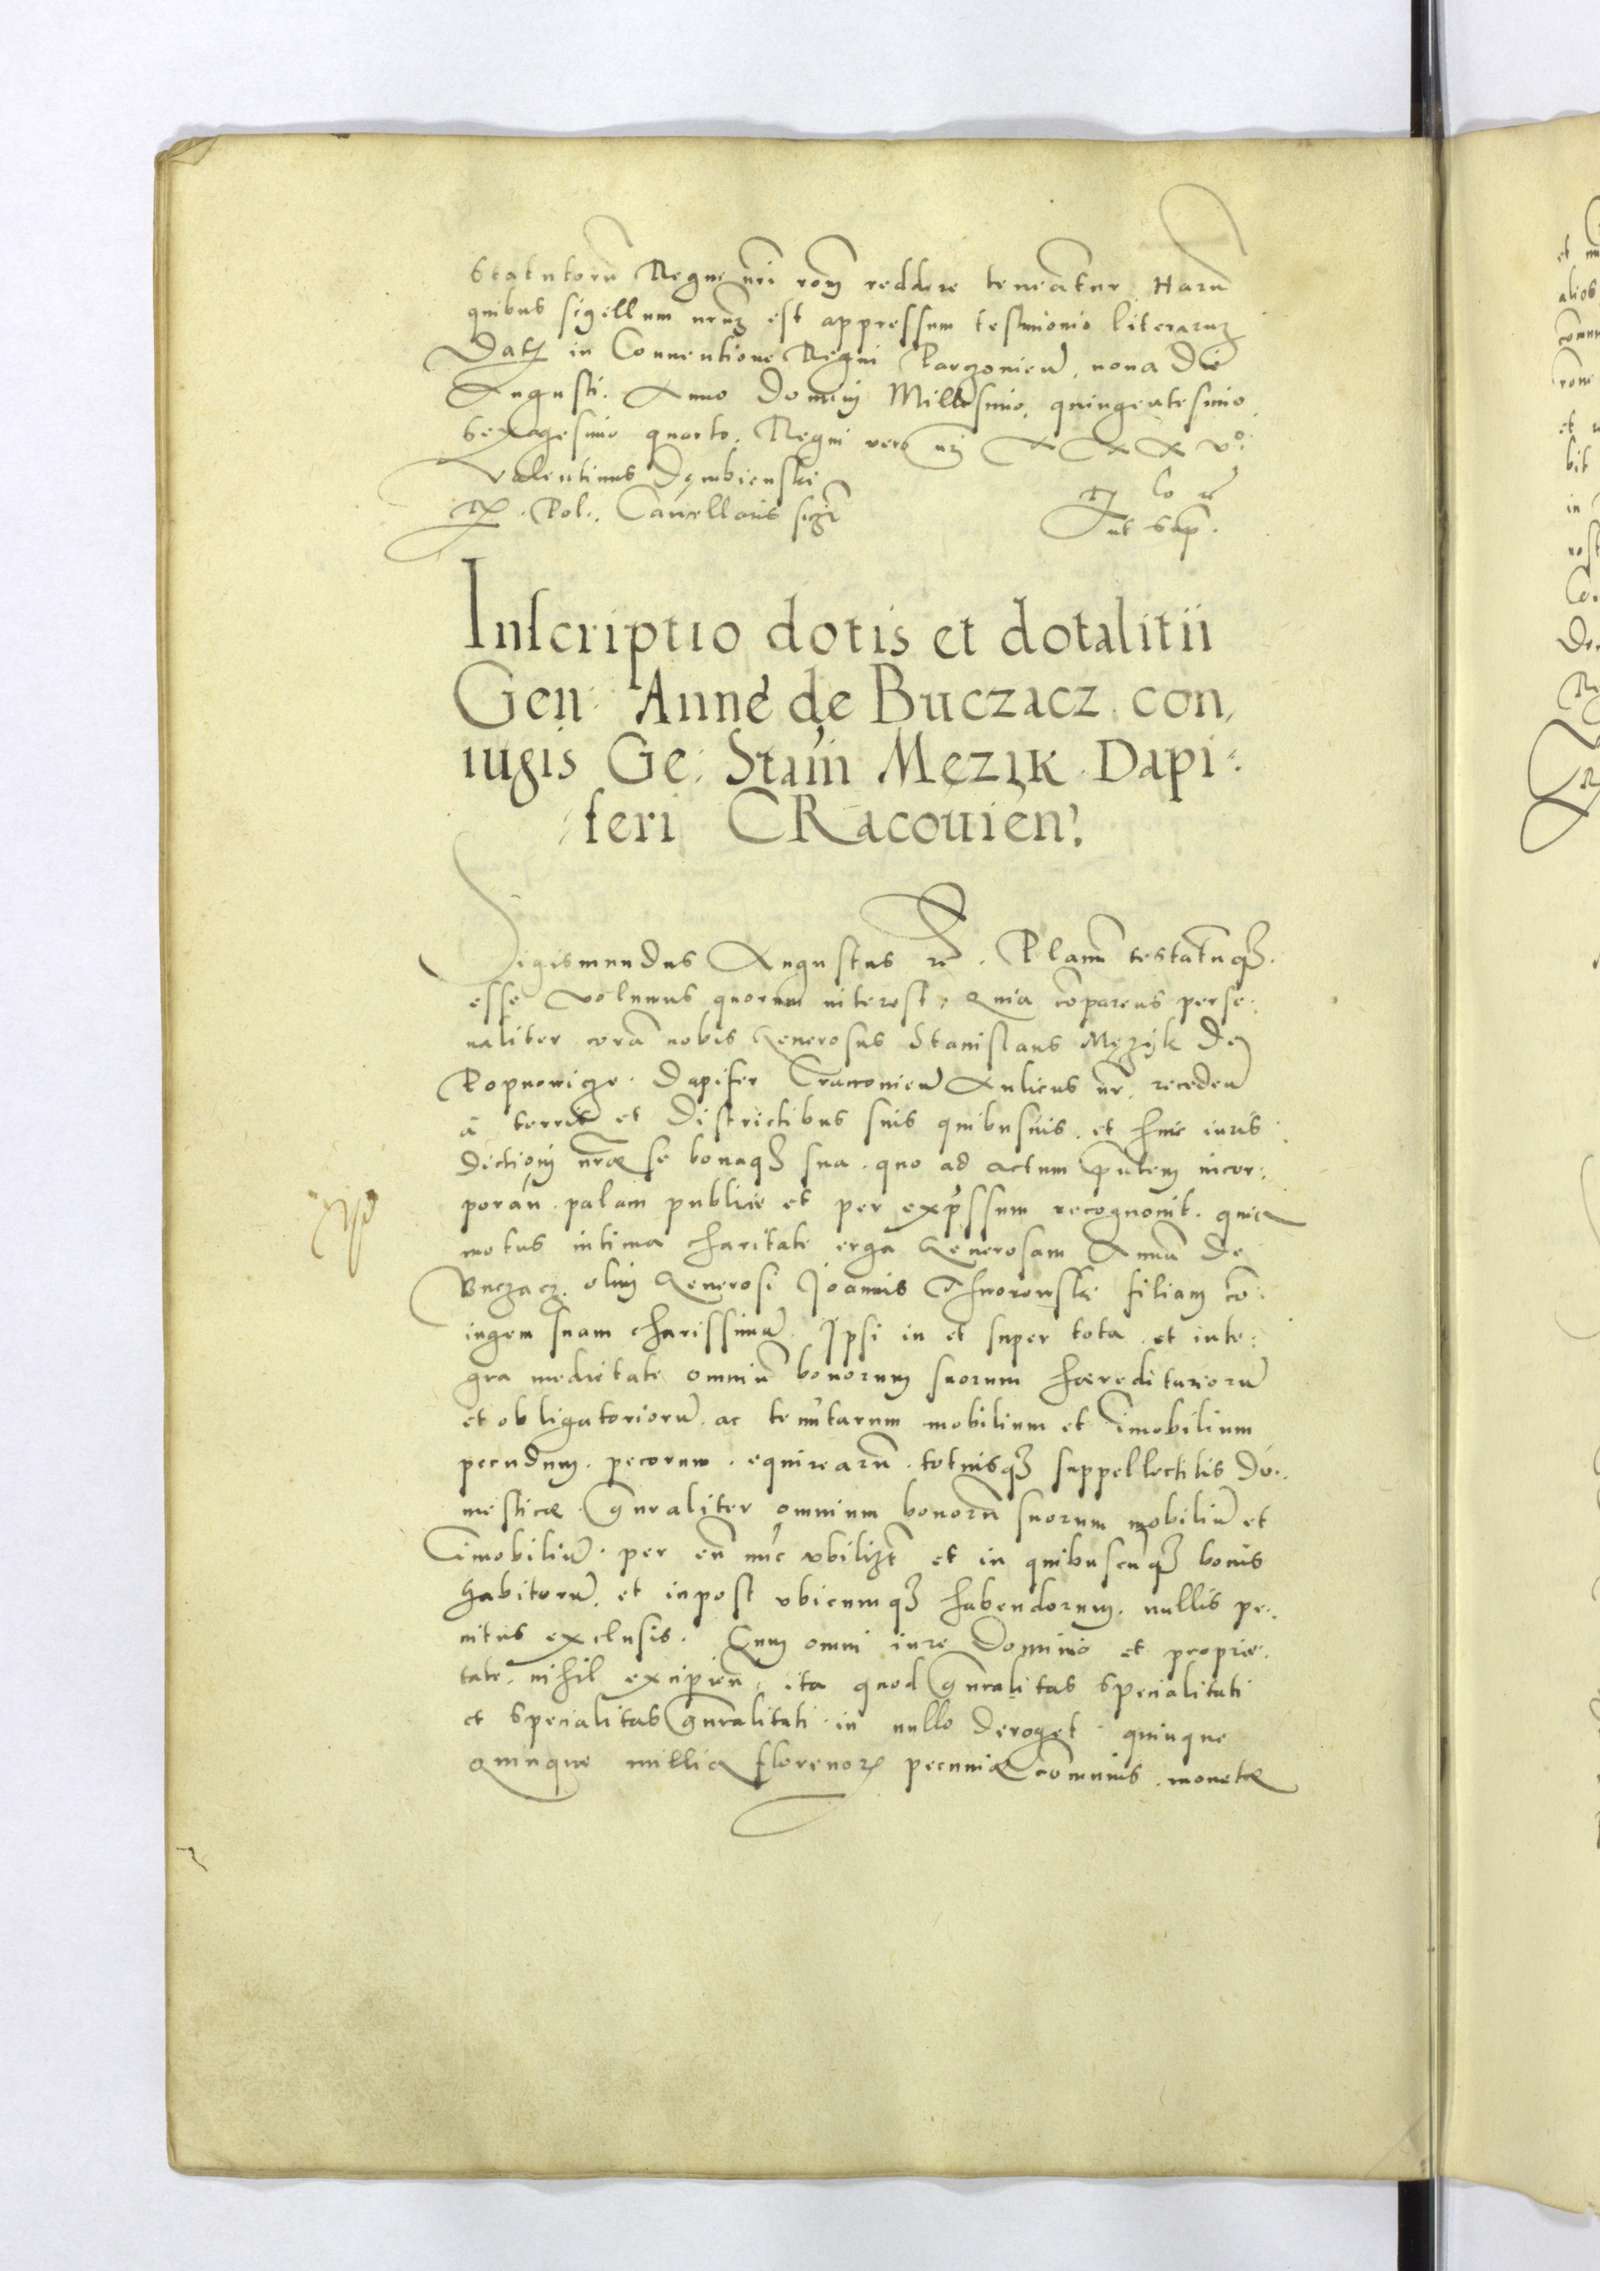 Statutorũ Regni nri rõnẽ reddere teneatur. Harũ
quibus sigellum nrũm est appressum testimonio literarum
Datũ in Conventione Regni Parczovieñ. nona die
Augusti. Anno Domini Millesimo, quingentesimo
Sexagesimo quarto. Regni vero nri XXXV°.
Valentinus Dembienski
R. Pol. Cancellarius
ut sup.
Inscriptio dotis et dotalitii
Gen: Annę de Buczacz con,
iugis Ge: Stani Męzik Dapi:
feri CRacovien:
Sigismundus Augustus . Planũ testatũq3
esse volumus quorum interest, Quia cõparens perso:
naliter corã nobis Generosus Stanislaus Męzyk de
Dapifer Cracovieñ Aulicus nr̃, recedeñ
à terris et districtibus suis quibusuis, et huic iuris
dictioni nrãe se bonaq3 sua, quo ad actum pñtem incor:
porañ. palam publice et per expressum recognovit. quia
motus intima charitate erga Generosam Annã de
Buczacz. olim Generosi Joannis Thworowski filiam cõ:
iugem suam charissimã. Ipsi in et super tota et inte:
gra medietate omniũ bonorum suorum hæreditariorũ
et obligatoriorũ. ac tenutarum mobilium et imobilium
pecudum. pecorum. equirearũ. totiusq3 suppellectilis do:
mesticæ. Gñraliter omnium bonorũ suorum mobiliũ et
imobiliũ. per eũ nũc vbilizt et in quibuscũq3 bonis
habitorũ. et inpost vbicumq3 habendorum. nullis pe:
nitus exclusis. Cum omni iure Dominio et proprie:
tate. nihil excipieñ, ita quod gñralitas specialitati
et specialitas gñralitati in nullo deroget. quinque
quinque millia florenorum pecuniæ comunis. monetæ